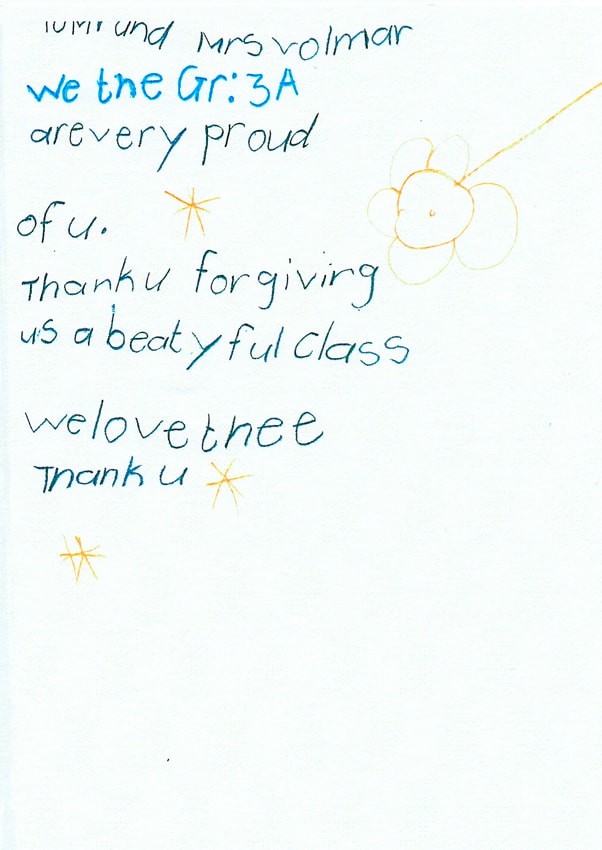 to Mr und Mrs volmar
We the Gr:3A
are very proud
of u.
Thank u for giving
us a beatyful class
we love thee
Thank u